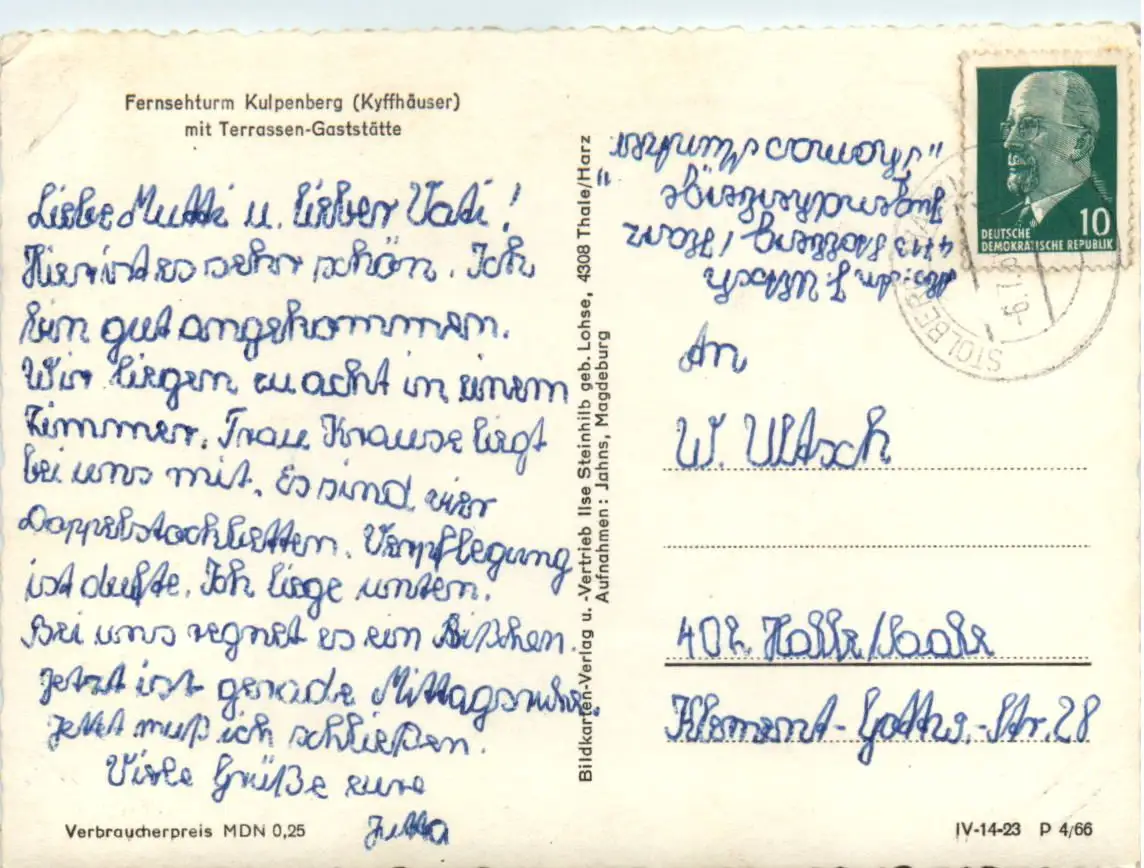 Fernsehturm Kulpenberg (Kyffhäuser)
mit Terrassen-Gaststätte
Liebe Mutti u. lieber Vati!
Hier ist es sehr schön. Ich
bin gut angekommen.
Wir liegen zu acht in einem
Zimmer. Frau Krause liegt
bei uns mit. Es sind vier
Doppelstockbetten. Verpflegung
ist dufte. Ich liege unten.
Bei uns regnet es ein Bißchen.
Jetzt ist gerade Mittagsruhe.
Jetzt muß ich schließen.
Viele Grüße eure
Jutta
Verbraucherpreis MDN 0,25
Bildkarten-Verlag u. -Vertrieb Ilse Steinhilb geb. Lohse, 4308 Thale/Harz
Aufnahmen: Jahns, Magdeburg
Absender J. Ultsch
4713 Stolberg / Harz
Jugendherberge
"Thomas Müntzer"
DEUTSCHE
DEMOKRATISCHE REPUBLIK
10
STOLBERG
An
W. Ultsch
402 Halle/Saale
Klement-Gottw.-Str. 28
IV-14-23 P 4/66